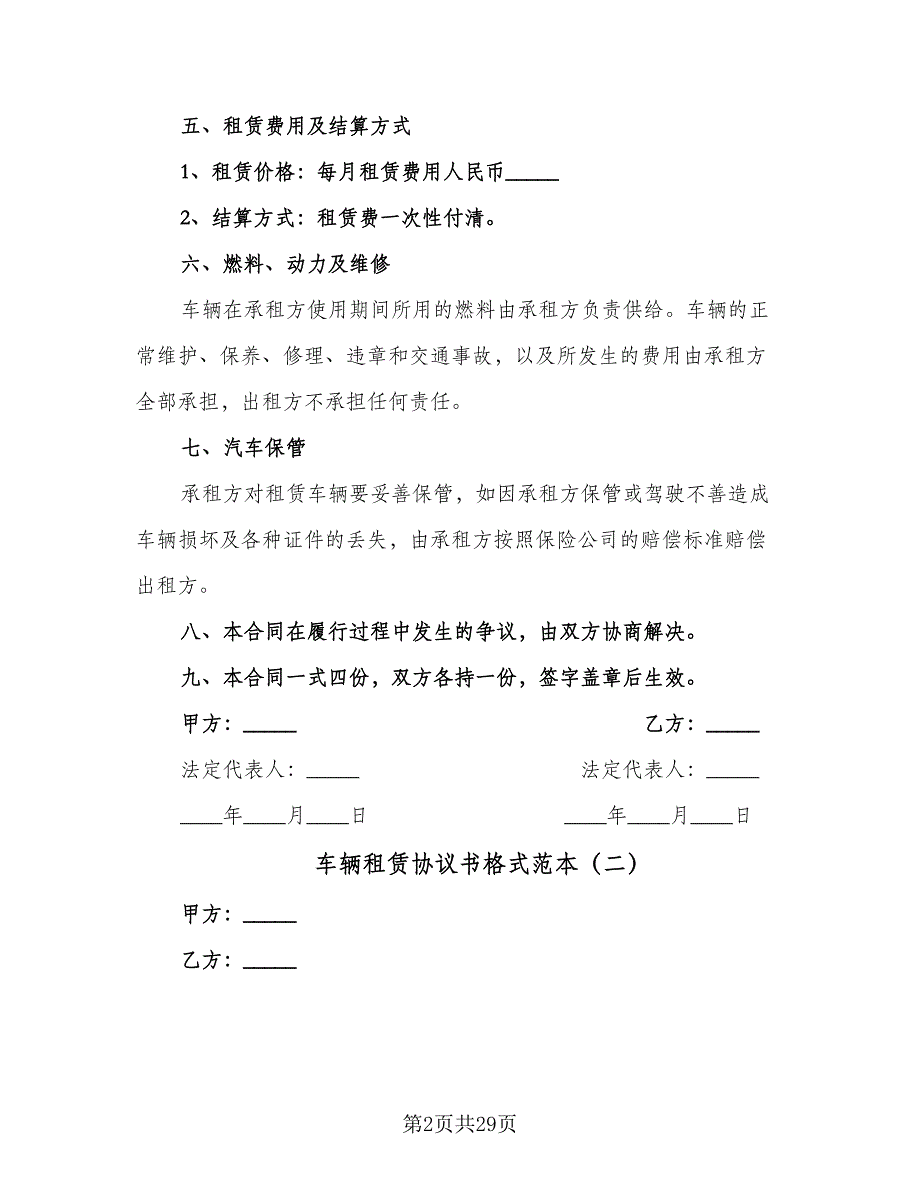 五、租赁费用及结算方式
1、租赁价格：每月租赁费用人民币_____
2、结算方式：租赁费一次性付清。
六、燃料、动力及维修
车辆在承租方使用期间所用的燃料由承租方负责供给。车辆的正
常维护、保养、修理、违章和交通事故，以及所发生的费用由承租方
全部承担，出租方不承担任何责任。
七、汽车保管
承租方对租赁车辆要妥善保管，如因承租方保管或驾驶不善造成
车辆损坏及各种证件的丢失，由承租方按照保险公司的赔偿标准赔偿
出租方。
八、本合同在履行过程中发生的争议，由双方协商解决。
九、本合同一式四份，双方各持一份，签字盖章后生效。
甲方：_____ 乙方：_____
法定代表人：_____ 法定代表人：_____
____年____月____日 ____年____月____日
车辆租赁协议书格式范本（二）
甲方：_____
乙方：_____
第2页共29页